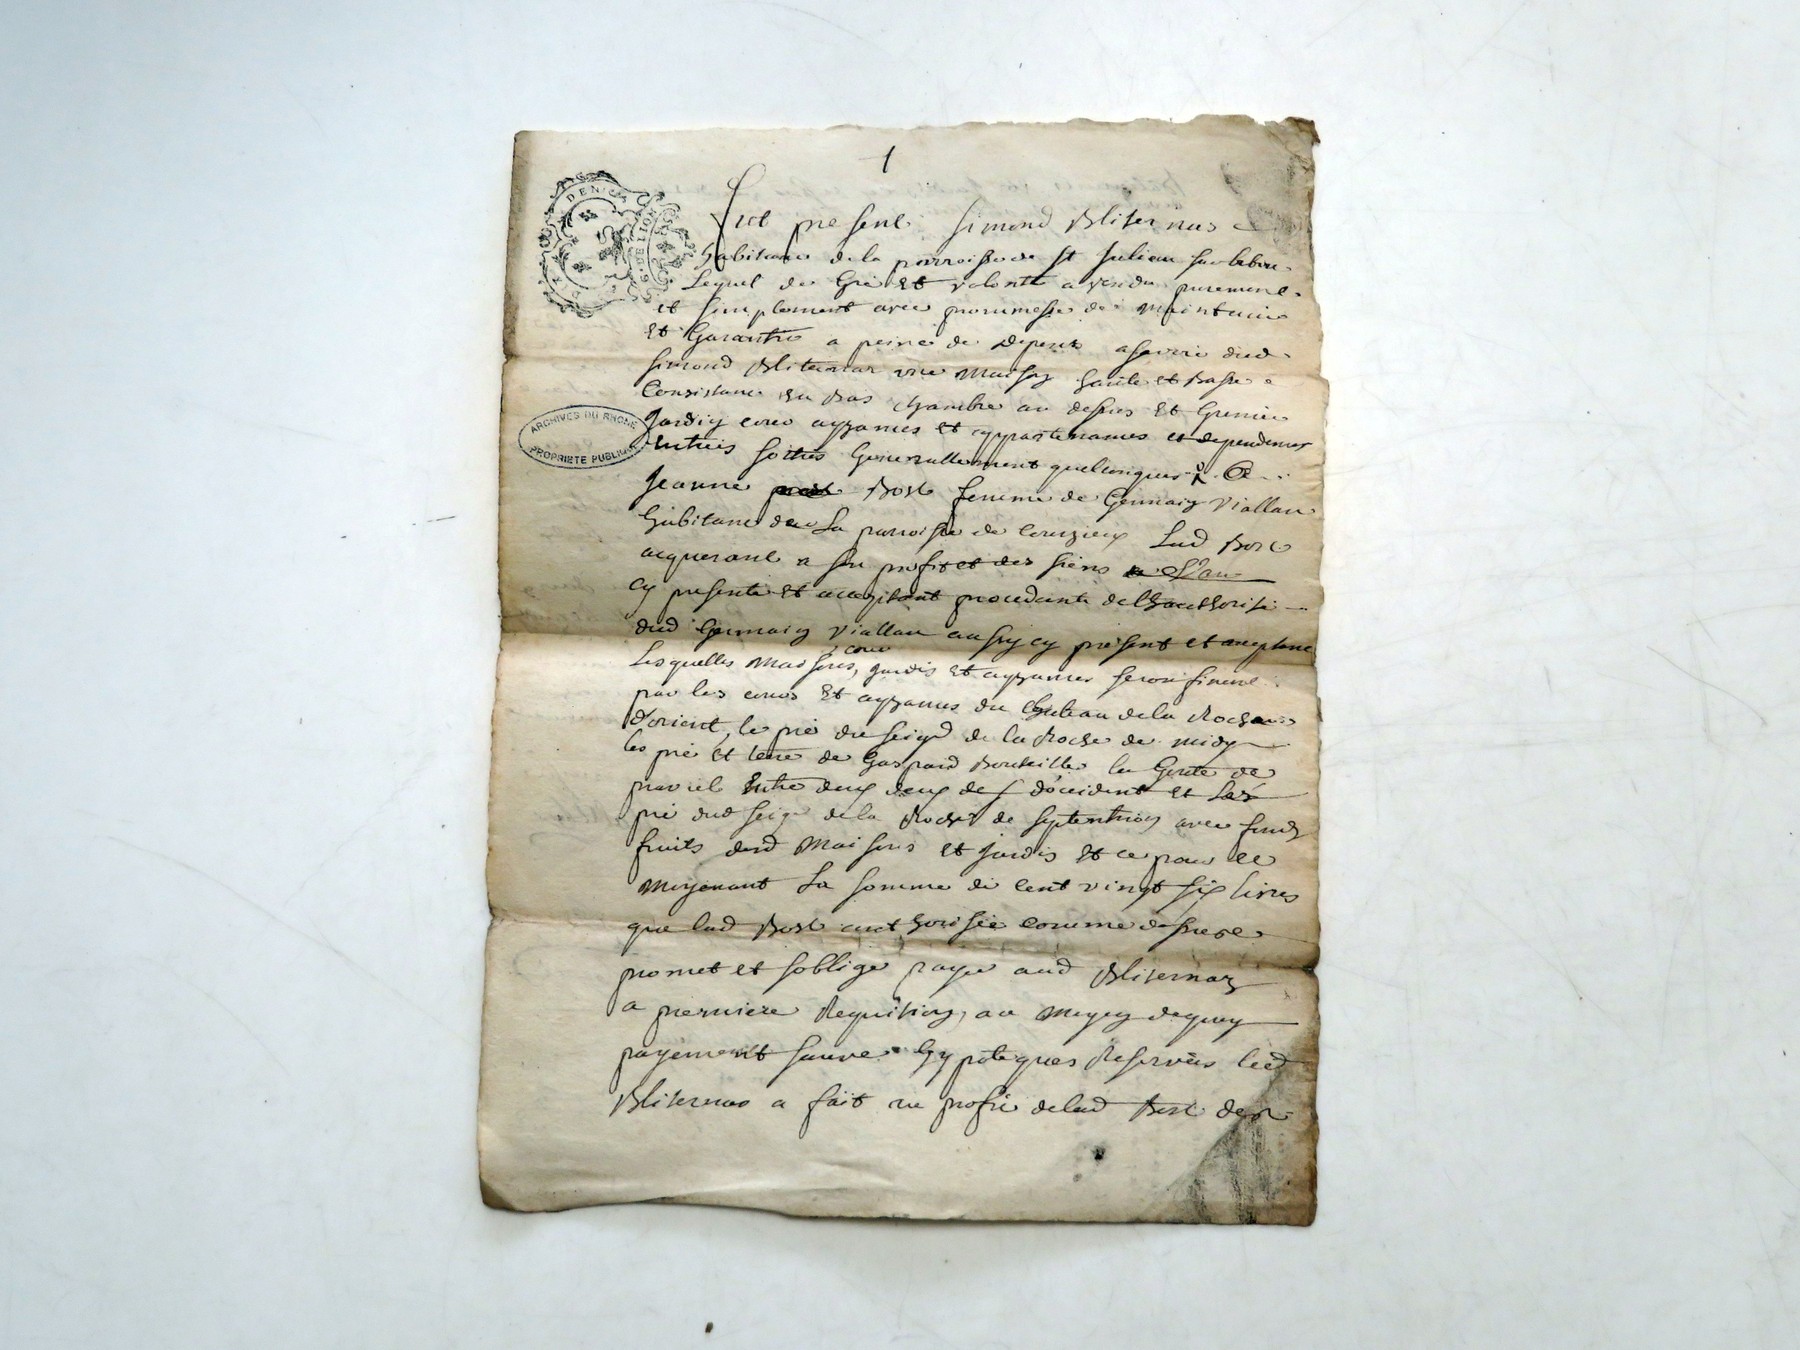 1
DENIER
G. DE LION
Fut present Simond Bliternas
habitant de la parroisse de St Julien sur bibou
Lequel de Gré Et volonté a vendu purement
et simplement avec prommesse de Maintenir
Et Garantir a peine de depens ascavoir dud
Simond Bliternas une Maison haute et Basse
Consistant En Bas chambre au dessus Et Grenier
Jardin cour ayzances et appartenances et dependences
Entrées sorties Generallement quelconques a
ARCHIVES DU RHONE
PROPRIETE PUBLIQUE
Jeanne Bost femme de Germain Viallan
habitant de La parroisse de Courzieux Lad Bost
acquerant a son profit et des siens
cy presente Et acceptant procedante de Lhauthorité
dud Germain Viallan aussy cy present et acceptant
Lesquelles Maisons, cour jardis Et ayzances seron finant
par les cours Et ayzances du Chateau de la Roche
d'orient, le pré du seigr de la Roche de midy
les pré et terre de Gaspard Bouteille la Goutte de
praviel Entre deux deux de d'occident et Les
pré dud seigr de la Roche de septentrion avec fonds
fruits desd Maisons et jardis Et ce pour Et
Moyenant La somme de Cent vingt six livres
que lad Bost aucthorisée comme dessus
promet et soblige payer aud Bliternas
a premiere Requisition, au Moyen de quoy
payement sauve hypoteques Reservées led
Bliternas a fait au profit de lad Bost de